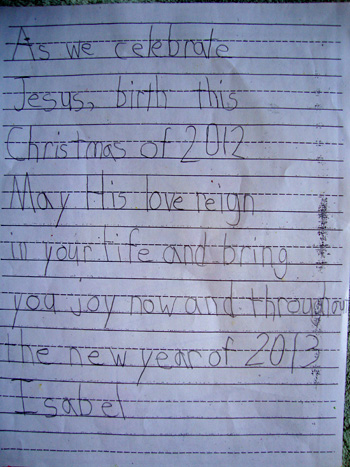 As we celebrate
Jesus, birth this
Christmas of 2012
May His love reign
in your life and bring
you joy now and throughou
the new year of 2013
Isabel